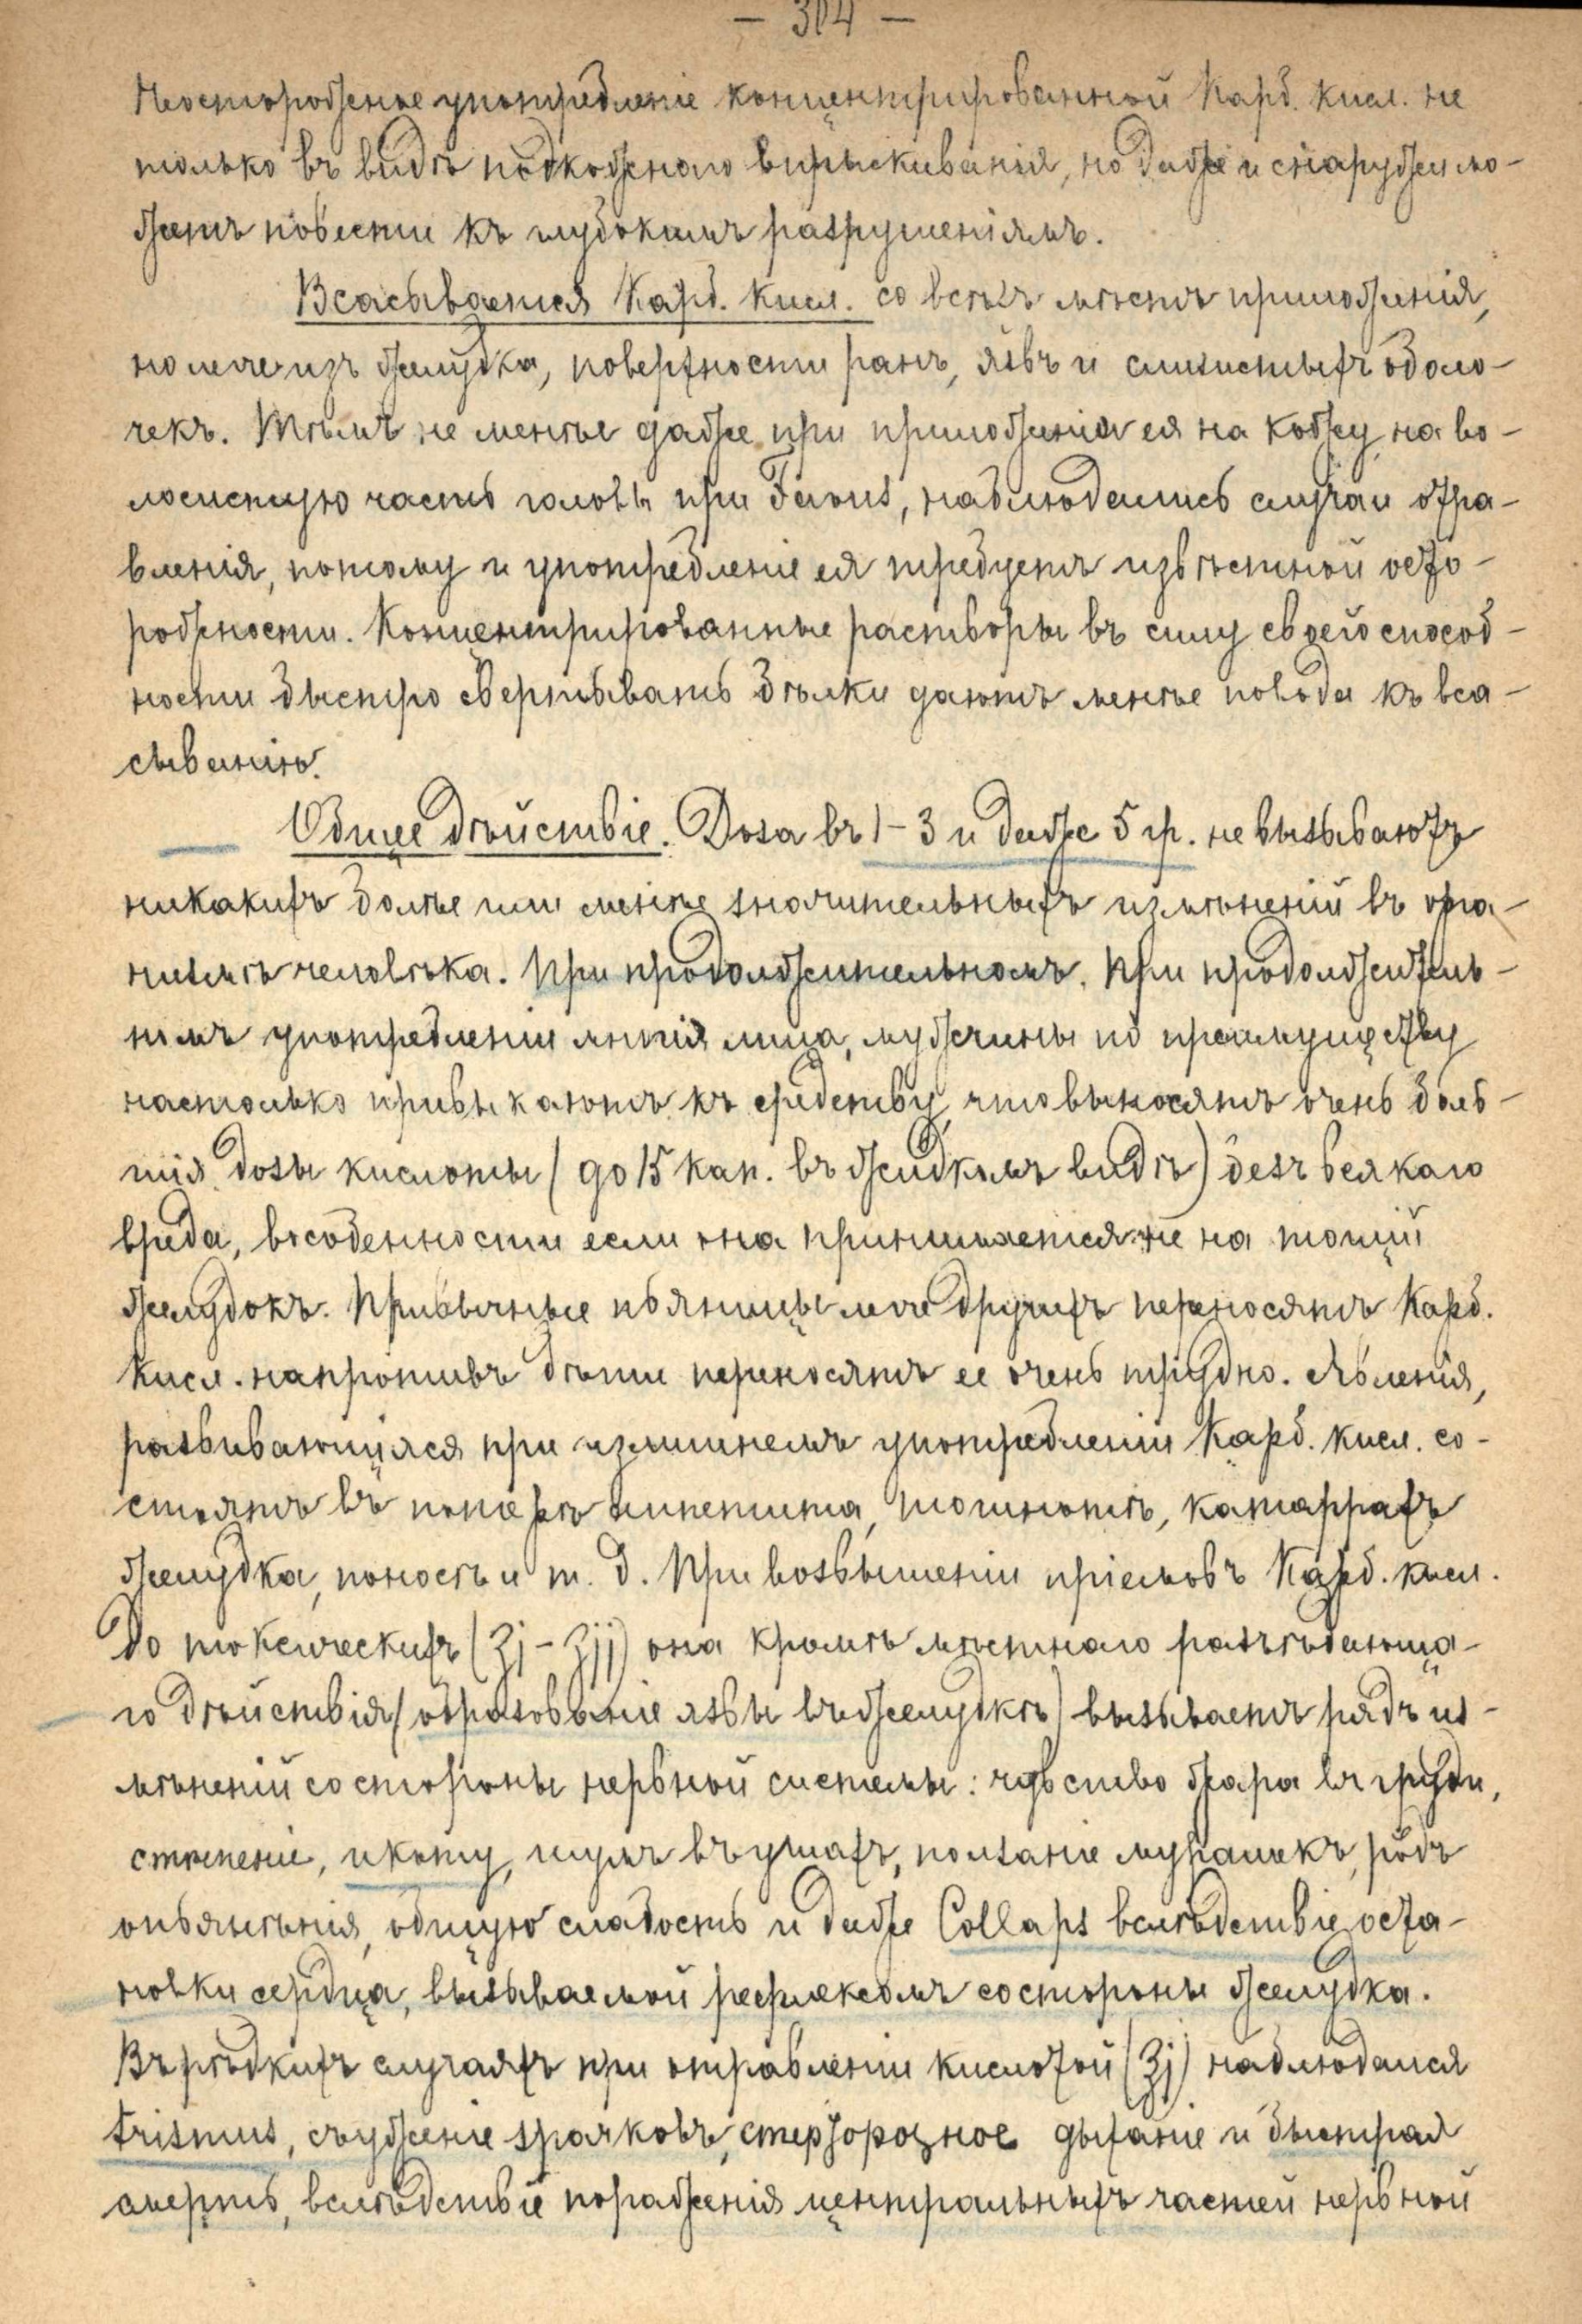 — 304 —
Неосторожное употребленіе концентрированной Карб. кисл. не
только въ видѣ подкожнаго впрыскиванія, но даже и снаружи мо-
жетъ повести къ глубокимъ разрушеніямъ.
Всасывается Карб. кисл. со всѣхъ мѣстъ приложенія,
но легче изъ желудка, поверхности ранъ, язвъ и слизистыхъ оболо-
чекъ. Тѣмъ не менѣе даже при приложеніи ея на кожу, на во-
лосистую часть головы при Favus, наблюдались случаи отра-
вленія, потому и употребленіе ея требуетъ извѣстной осто-
рожности. Концентрированные растворы въ силу своей способ-
ности быстро свертывать бѣлки даютъ менѣе повода къ вса-
сыванію.
Общее дѣйствіе. Доза въ 1-3 и даже 5 гр. не вызываютъ
никакихъ болѣе или менѣе значительныхъ измѣненій въ орга-
низмѣ человѣка. При продолжительномъ. При продолжитель-
номъ употребленіи иныя лица, мужчины по преимуществу
настолько привыкаютъ къ средству, что выносятъ очень боль-
шія дозы кислоты (до 15 кап. въ жидкомъ видѣ) безъ всякаго
вреда, въ особенности если она принимается не на тощій
желудокъ. Привычные пьяницы легче другихъ переносятъ Карб.
кисл. напротивъ дѣти переносятъ ее очень трудно. Явленія,
развивающіяся при излишнемъ употребленіи Карб. кисл. со-
стоятъ въ потерѣ аппетита, тошнотѣ, катаррахъ
желудка, поносѣ и т. д. При возвышеніи пріемовъ Карб. кисл.
до токсическихъ (ʒj - ʒjj) она кромѣ мѣстнаго разъѣдающа-
го дѣйствія (образованіе язвы въ желудкѣ) вызываетъ рядъ из-
мѣненій со стороны нервной системы: чувство жара въ груди,
стѣсненіе, икоту, шумъ въ ушахъ, ползаніе мурашекъ, родъ
опьянѣнія, общую слабость и даже Collaps вслѣдствіе оста-
новки сердца, вызываемой рефлексомъ со стороны желудка.
Въ рѣдкихъ случаяхъ при отравленіи кислотой (ʒj) наблюдался
trismus, съуженіе зрачковъ, стерторозное дыханіе и быстрая
смерть, вслѣдствіе пораженія центральныхъ частей нервной